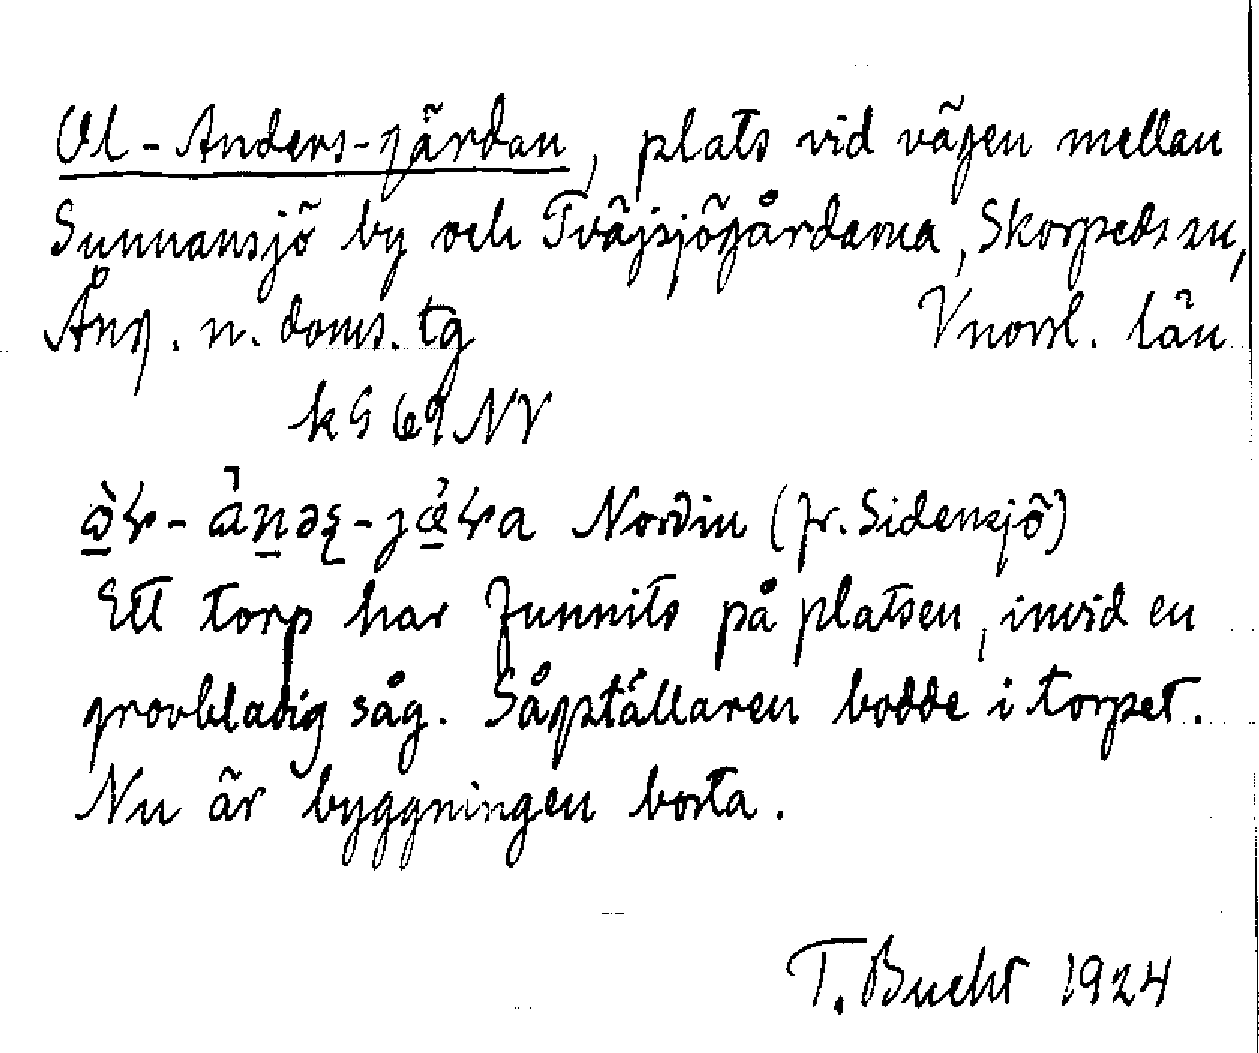 Ol-Anders-gärdan, plats vid vägen mellan
Sunnansjö by och Tväjsjögårdarna, Skorpeds sn,
Ång. n. doms. tg Vnorrl. län
k G 69 NV
Nordin (fr. Sidensjö)
Ett torp har funnits på platsen, invid en
grovbladig såg. Sågställaren bodde i torpet.
Nu är byggningen borta.
T. Bucht 1924